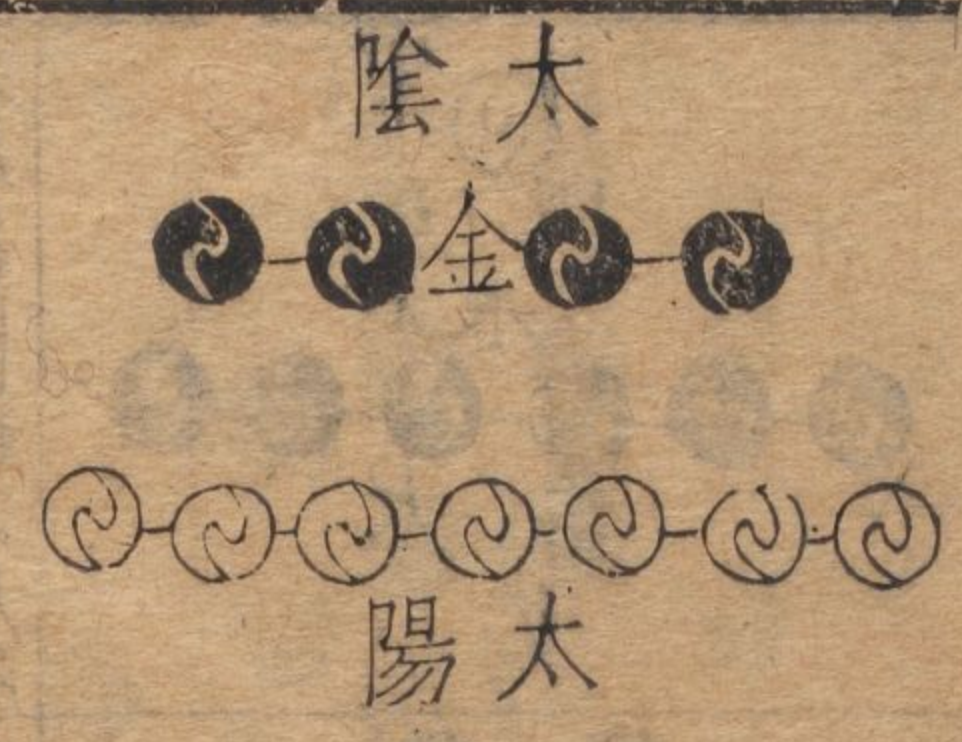 太隂
金
太陽